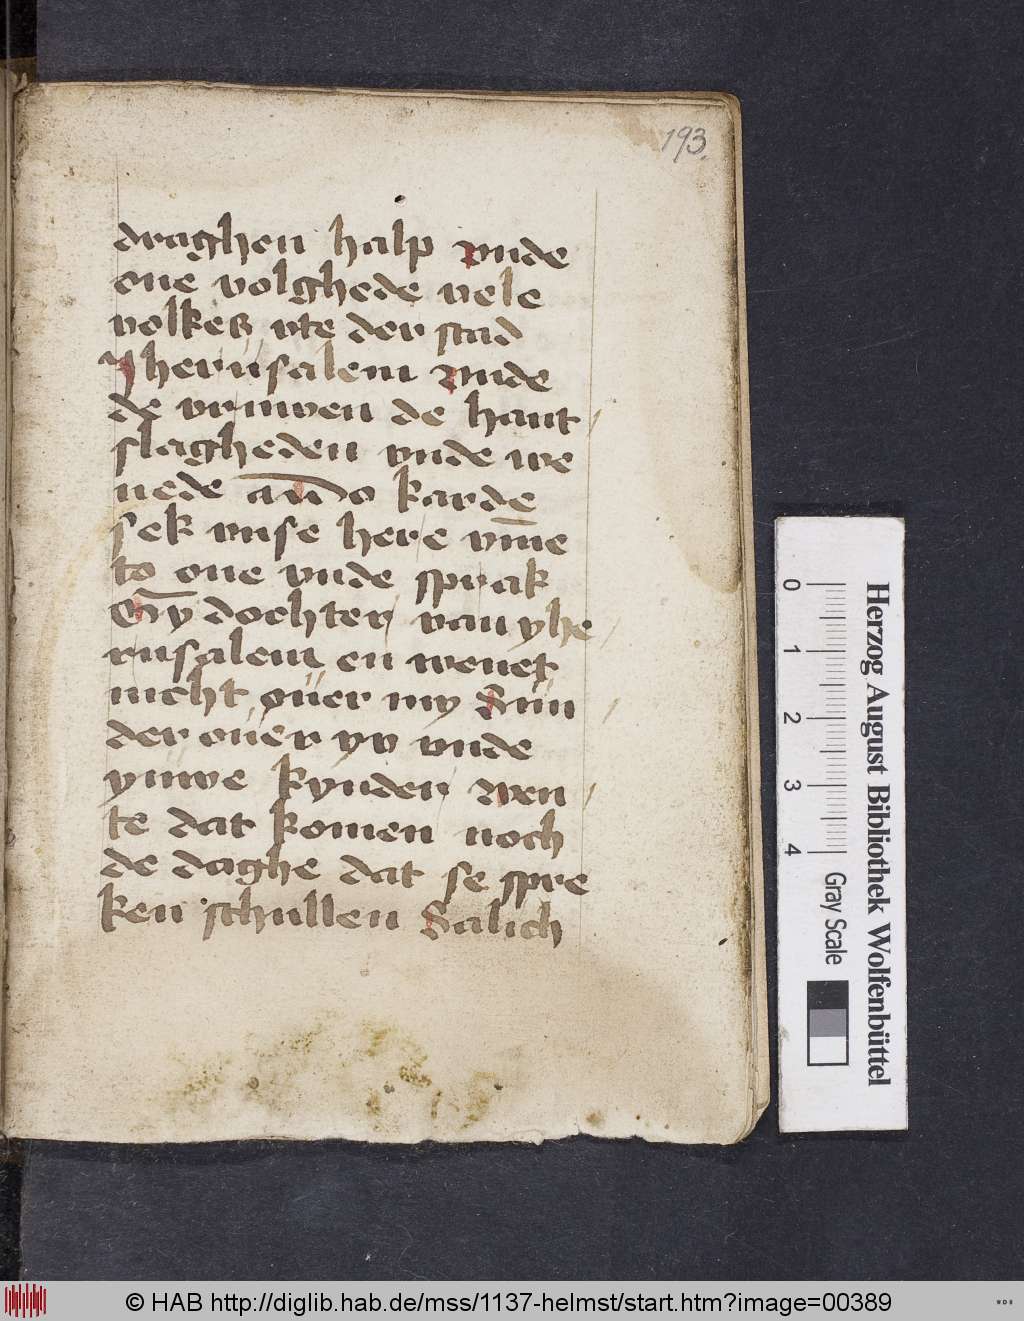 193.
draghen halp vnde
one volghede vele
volkes vte der stad
Yherusalem Vnde
de vruwen de hant
slagheden vnde we
nede
karde
sek vnse here vm̄e
to one vnde sprak
dochter van yhe
rusalem en wenet
nicht ouer my Sun
der ouer yv vnde
yuwe kynder Wen
te dat komen noch
de daghe dat se spre
ken schullen Salich
0 1 2 3 4
Gray Scale
Herzog August Bibliothek Wolfenbüttel
© HAB http://diglib.hab.de/mss/1137-helmst/start.htm?image=00389